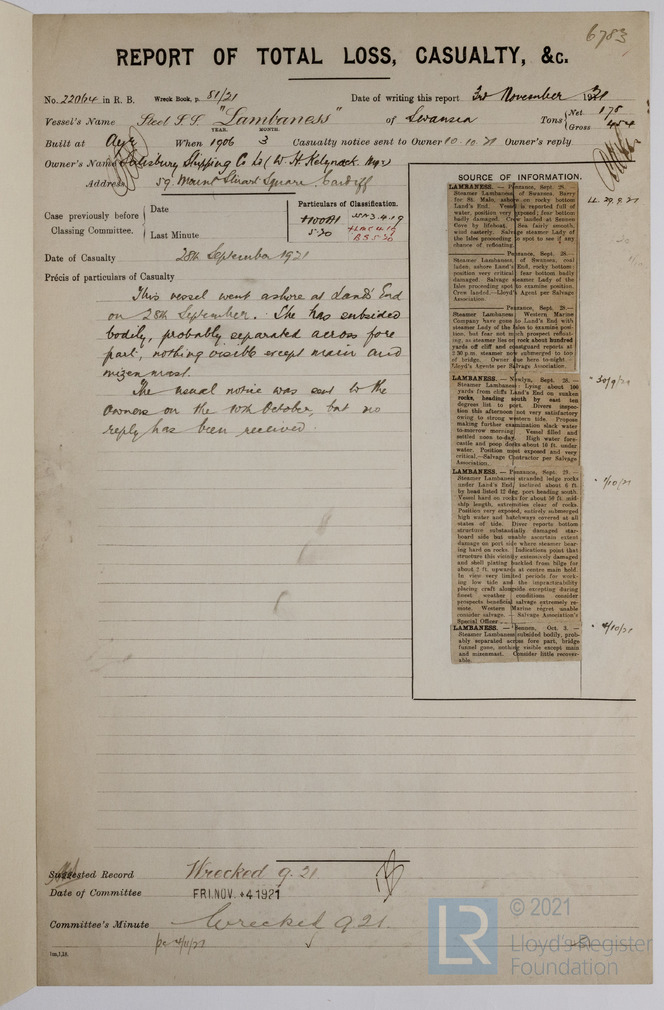 6783
REPORT OF TOTAL LOSS, CASUALTY, &c.
No. 22064 in R. B. Wreck Book, p. 81/21 Date of writing this report 3rd November 1921
Vessel's Name Steel S.S. "Lambaness" of Swansea Tons { Net 178
Gross 454
YEAR. MONTH.
Built at Ayr When 1906 3 Casualty notice sent to Owner 10.10.21 Owner's reply
Owner's Name Salisbury Shipping Co Ld (W. H. Kelynack. Mgr)
Address 59 Mount Stuart Square. Cardiff
Case previously before Classing Committee. { Date
Last Minute
Particulars of Classification.
+100A1 SSN 3.4.19
5.20 +LMC 4.19
B.S. 5.20
Date of Casualty 28th September 1921
Précis of particulars of Casualty
This vessel went ashore at Lands End
on 28th September. She has subsided
bodily, probably separated across fore
part, nothing visible except main and
mizen mast.
The usual notice was sent to the
Owners on the 10th October, but no
reply has been received.
SOURCE OF INFORMATION.
LL. 29.9.21
LAMBANESS. — Penzance, Sept. 28. —
Steamer Lambaness, of Swansea, Barry
for St. Malo, ashore on rocky bottom
Land's End. Vessel is reported full of
water, position very exposed; fear bottom
badly damaged. Crew landed at Sennen
Cove by lifeboat. Sea fairly smooth,
wind easterly. Salvage steamer Lady of
the Isles proceeding to spot to see if any
chance of refloating.
— Penzance, Sept. 28. —
Steamer Lambaness, of Swansea, coal
laden, ashore Land's End, rocky bottom:
position very critical; fear bottom badly
damaged. Salvage steamer Lady of the
Isles proceeding spot to examine position.
Crew landed.—Lloyd's Agent per Salvage
Association.
— Penzance, Sept. 28.—
Steamer Lambaness: Western Marine
Company have gone to Land's End with
steamer Lady of the Isles to examine posi-
tion, but fear not much prospect refloat-
ing, as steamer lies on rock about hundred
yards off cliff and coastguard reports at
2 30 p.m. steamer now submerged to top
of bridge. Owner due here to-night.—
Lloyd's Agents per Salvage Association.
" 30/9/21
LAMBANESS.—Newlyn, Sept. 28. —
Steamer Lambaness: Lying about 100
yards from cliffs Land's End on sunken
rocks, heading south by east 10
degrees list to port. Divers inspec-
tion this afternoon not very satisfactory
owing to strong western tide. Propose
making further examination slack water
to-morrow morning. Vessel filled and
settled noon to-day. High water fore-
castle and poop decks about 10 ft. under
water. Position most exposed and very
critical.—Salvage Contractor per Salvage
Association.
" 1/10/21
LAMBANESS. — Penzance, Sept. 29. —
Steamer Lambaness stranded ledge rocks
under Land's End, inclined about 6 ft.
by head listed 12 deg. port heading south.
Vessel hard on rocks for about 50 ft. mid-
ship length, extremities clear of rocks.
Position very exposed, entirely submerged
high water and hatchways covered at all
states of tide. Diver reports bottom
structure substantially damaged star-
board side but unable ascertain extent
damage on port side where steamer bear-
ing hard on rocks. Indications point that
structure this vicinity extensively damaged
and shell plating buckled from bilge for
about 2 ft. upwards at centre main hold.
In view very limited periods for work-
ing low tide and the impracticability
placing craft alongside excepting during
finest weather conditions consider
prospects beneficial salvage extremely re-
mote. Western Marine regret unable
consider salvage. — Salvage Association's
Special Officer.
" 4/10/21
LAMBANESS. — Sennen, Oct. 3. —
Steamer Lambaness subsided bodily, prob-
ably separated across fore part, bridge
funnel gone, nothing visible except main
and mizenmast. Consider little recover-
able.
Suggested Record Wrecked 9.21
Date of Committee FRI. NOV. 4 1921
Committee's Minute Wrecked 9.21.
4/11/21
© 2021
LR Lloyd's Register
Foundation